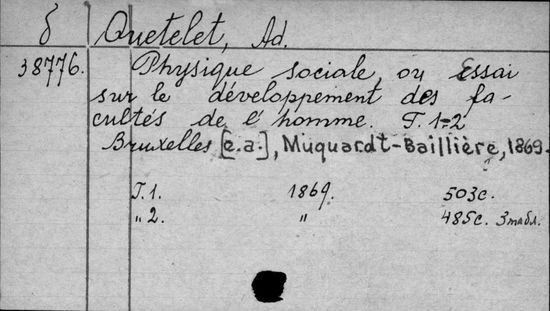 б Quetelet, Ad.
38776. Physique sociale, ou Essai
sur le développement des fa-
cultés de l'homme. T. 1-2
Bruxelles [e.a.], Muquardt-Baillière, 1869.
T. 1. 1869. 503с.
" 2. " 485с. 3 табл.